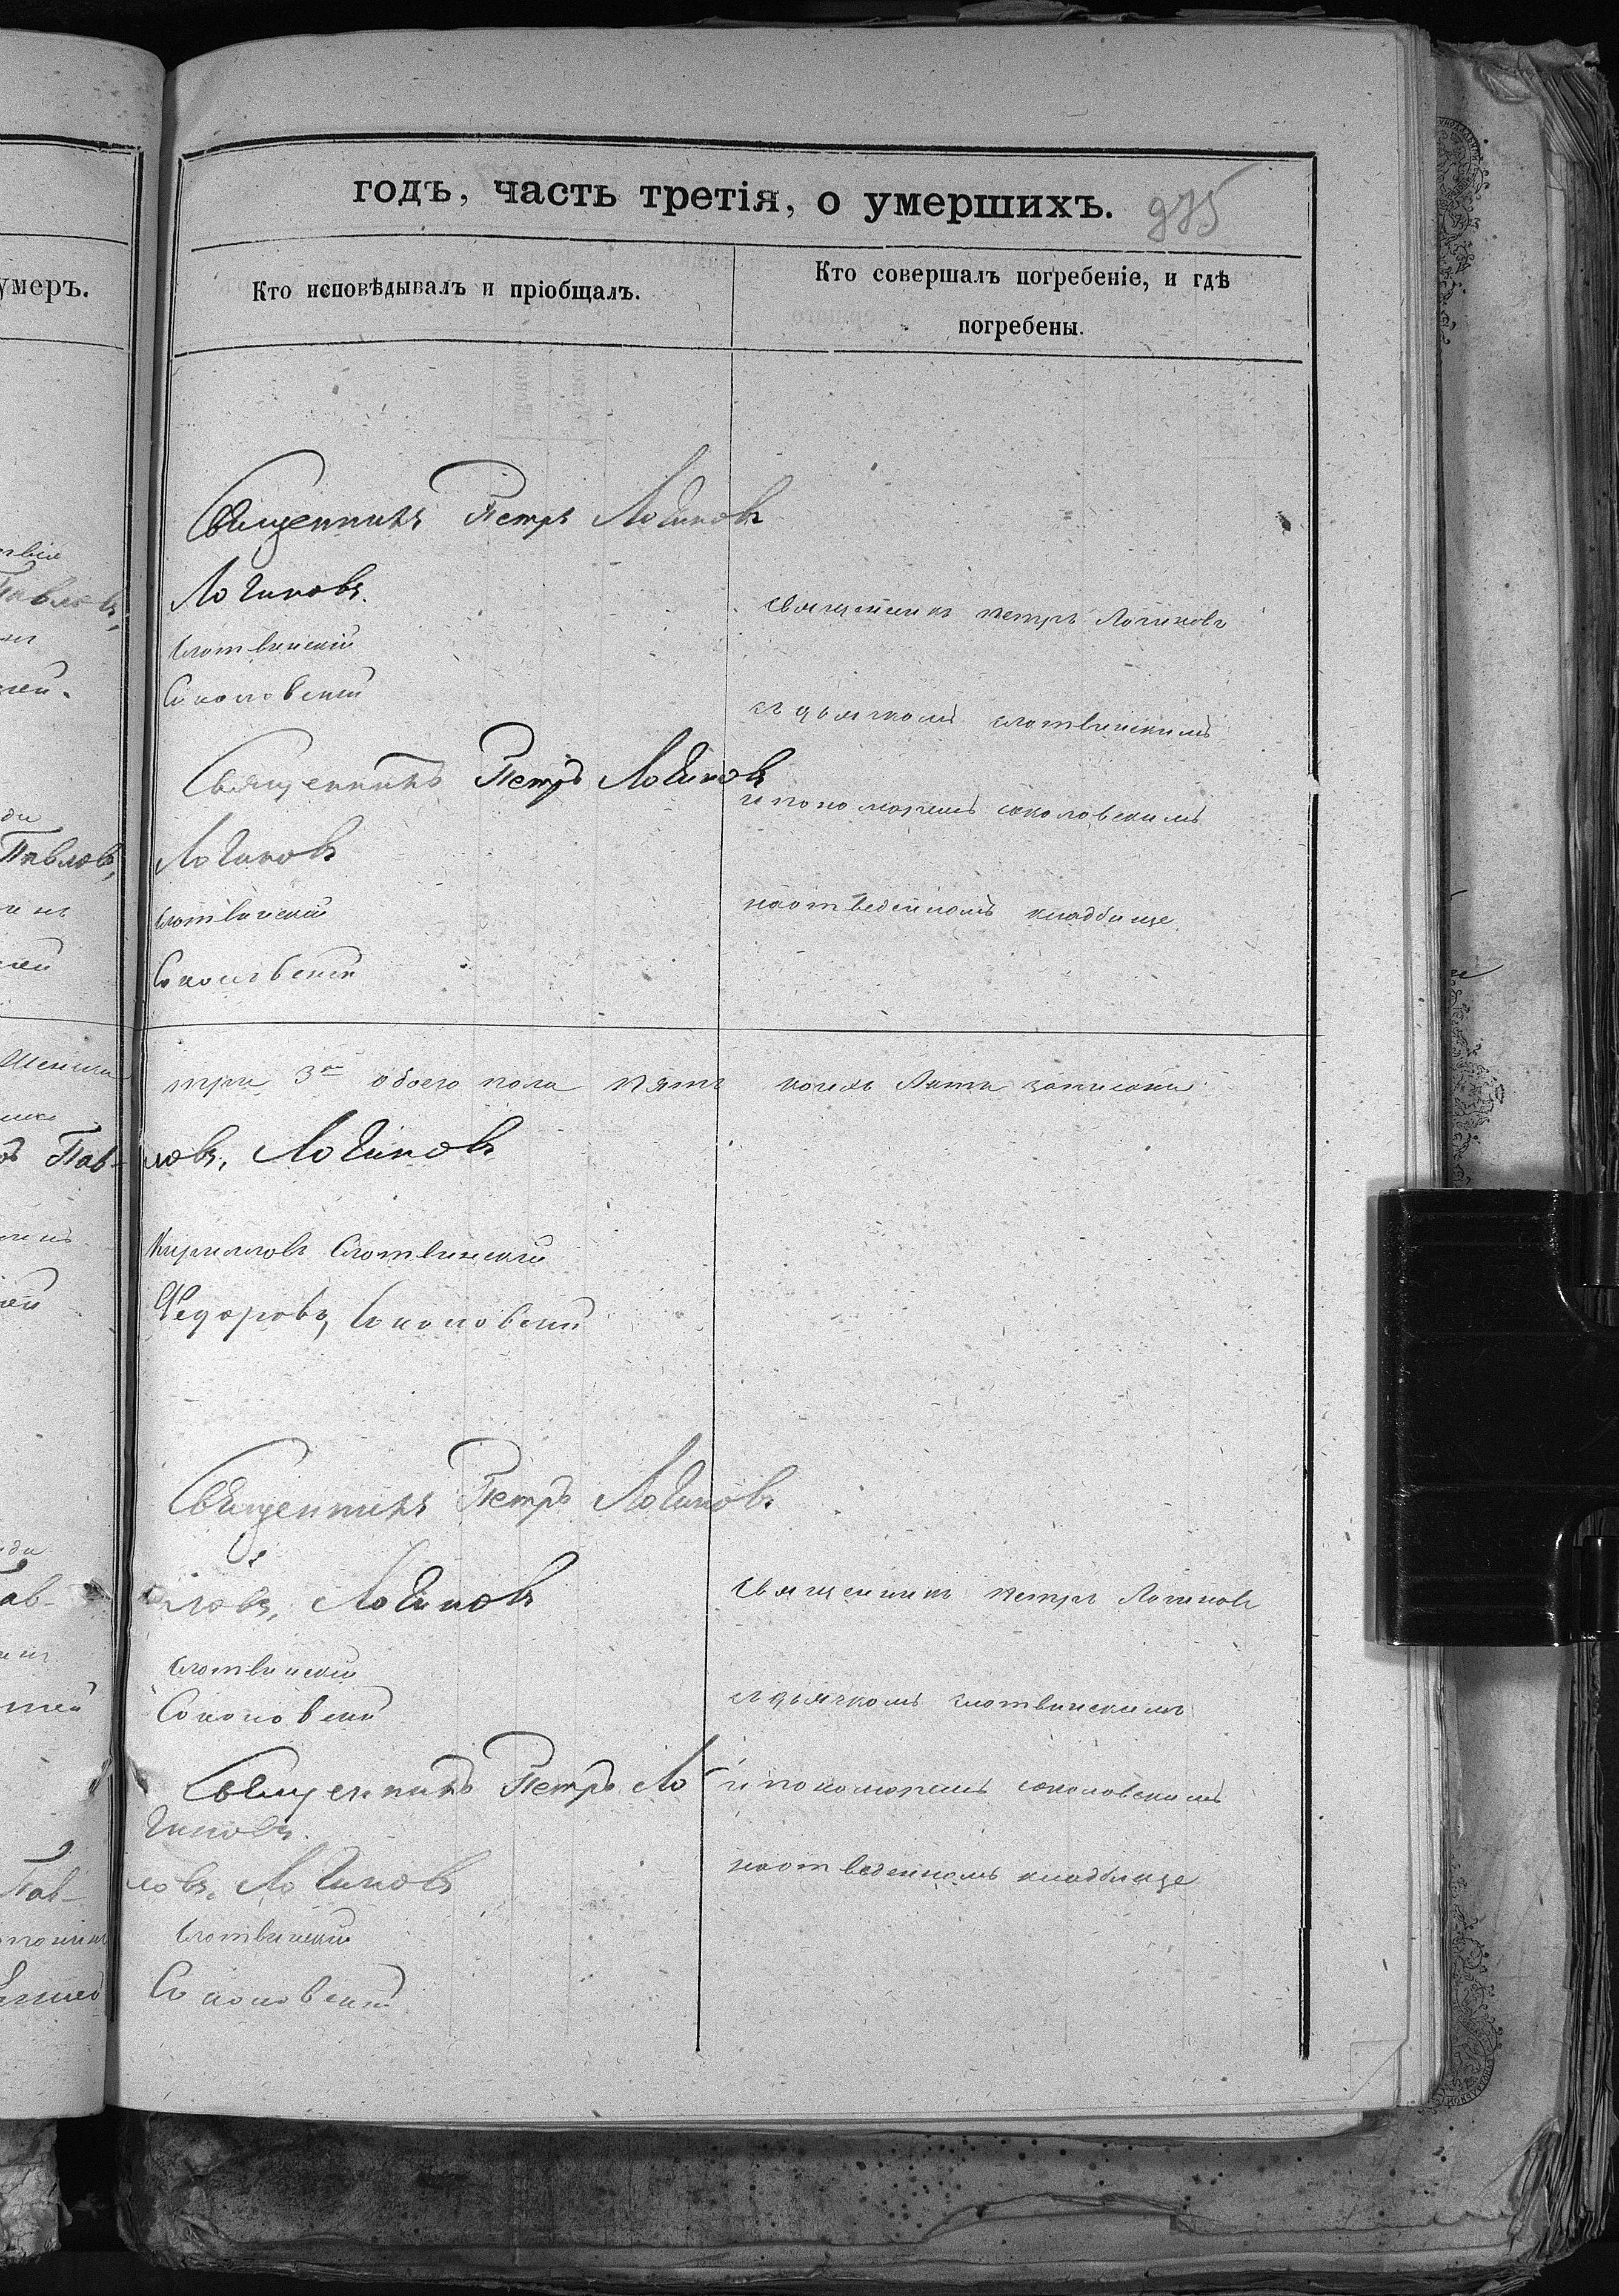 годъ, часть третія, о умершихъ. 975
умеръ.
Кто исповѣдывалъ и пріобщалъ.
Кто совершалъ погребеніе, и гдѣ
погребены.
Священникъ Петръ Логиновъ
Логиновъ.
Слотвинскій
Соколовскій
Священникъ Петръ Логиновъ
Логиновъ
Слотвинскій
Соколовскій
священникъ Петръ Логиновъ
съ дьячкомъ Слотвинскимъ
и пономаремъ Соколовскимъ
на отведенномъ кладбище
Павловъ,
три 3 обоего пола пять коихъ Акты записаны
Пав-ловъ, Логиновъ
Кирилловъ Слотвинскій
Федоровъ Соколовскій
Священникъ Петръ Логиновъ
ловъ, Логиновъ
Слотвинскій
Соколовскій
Священникъ Петръ Ло
гиновъ
Пав-ловъ, Логиновъ
Слотвинскій
Соколовскій
Священникъ Петръ Логиновъ
съ дьячкомъ Слотвинскимъ
и пономаремъ Соколовскимъ
на отведенномъ кладбище